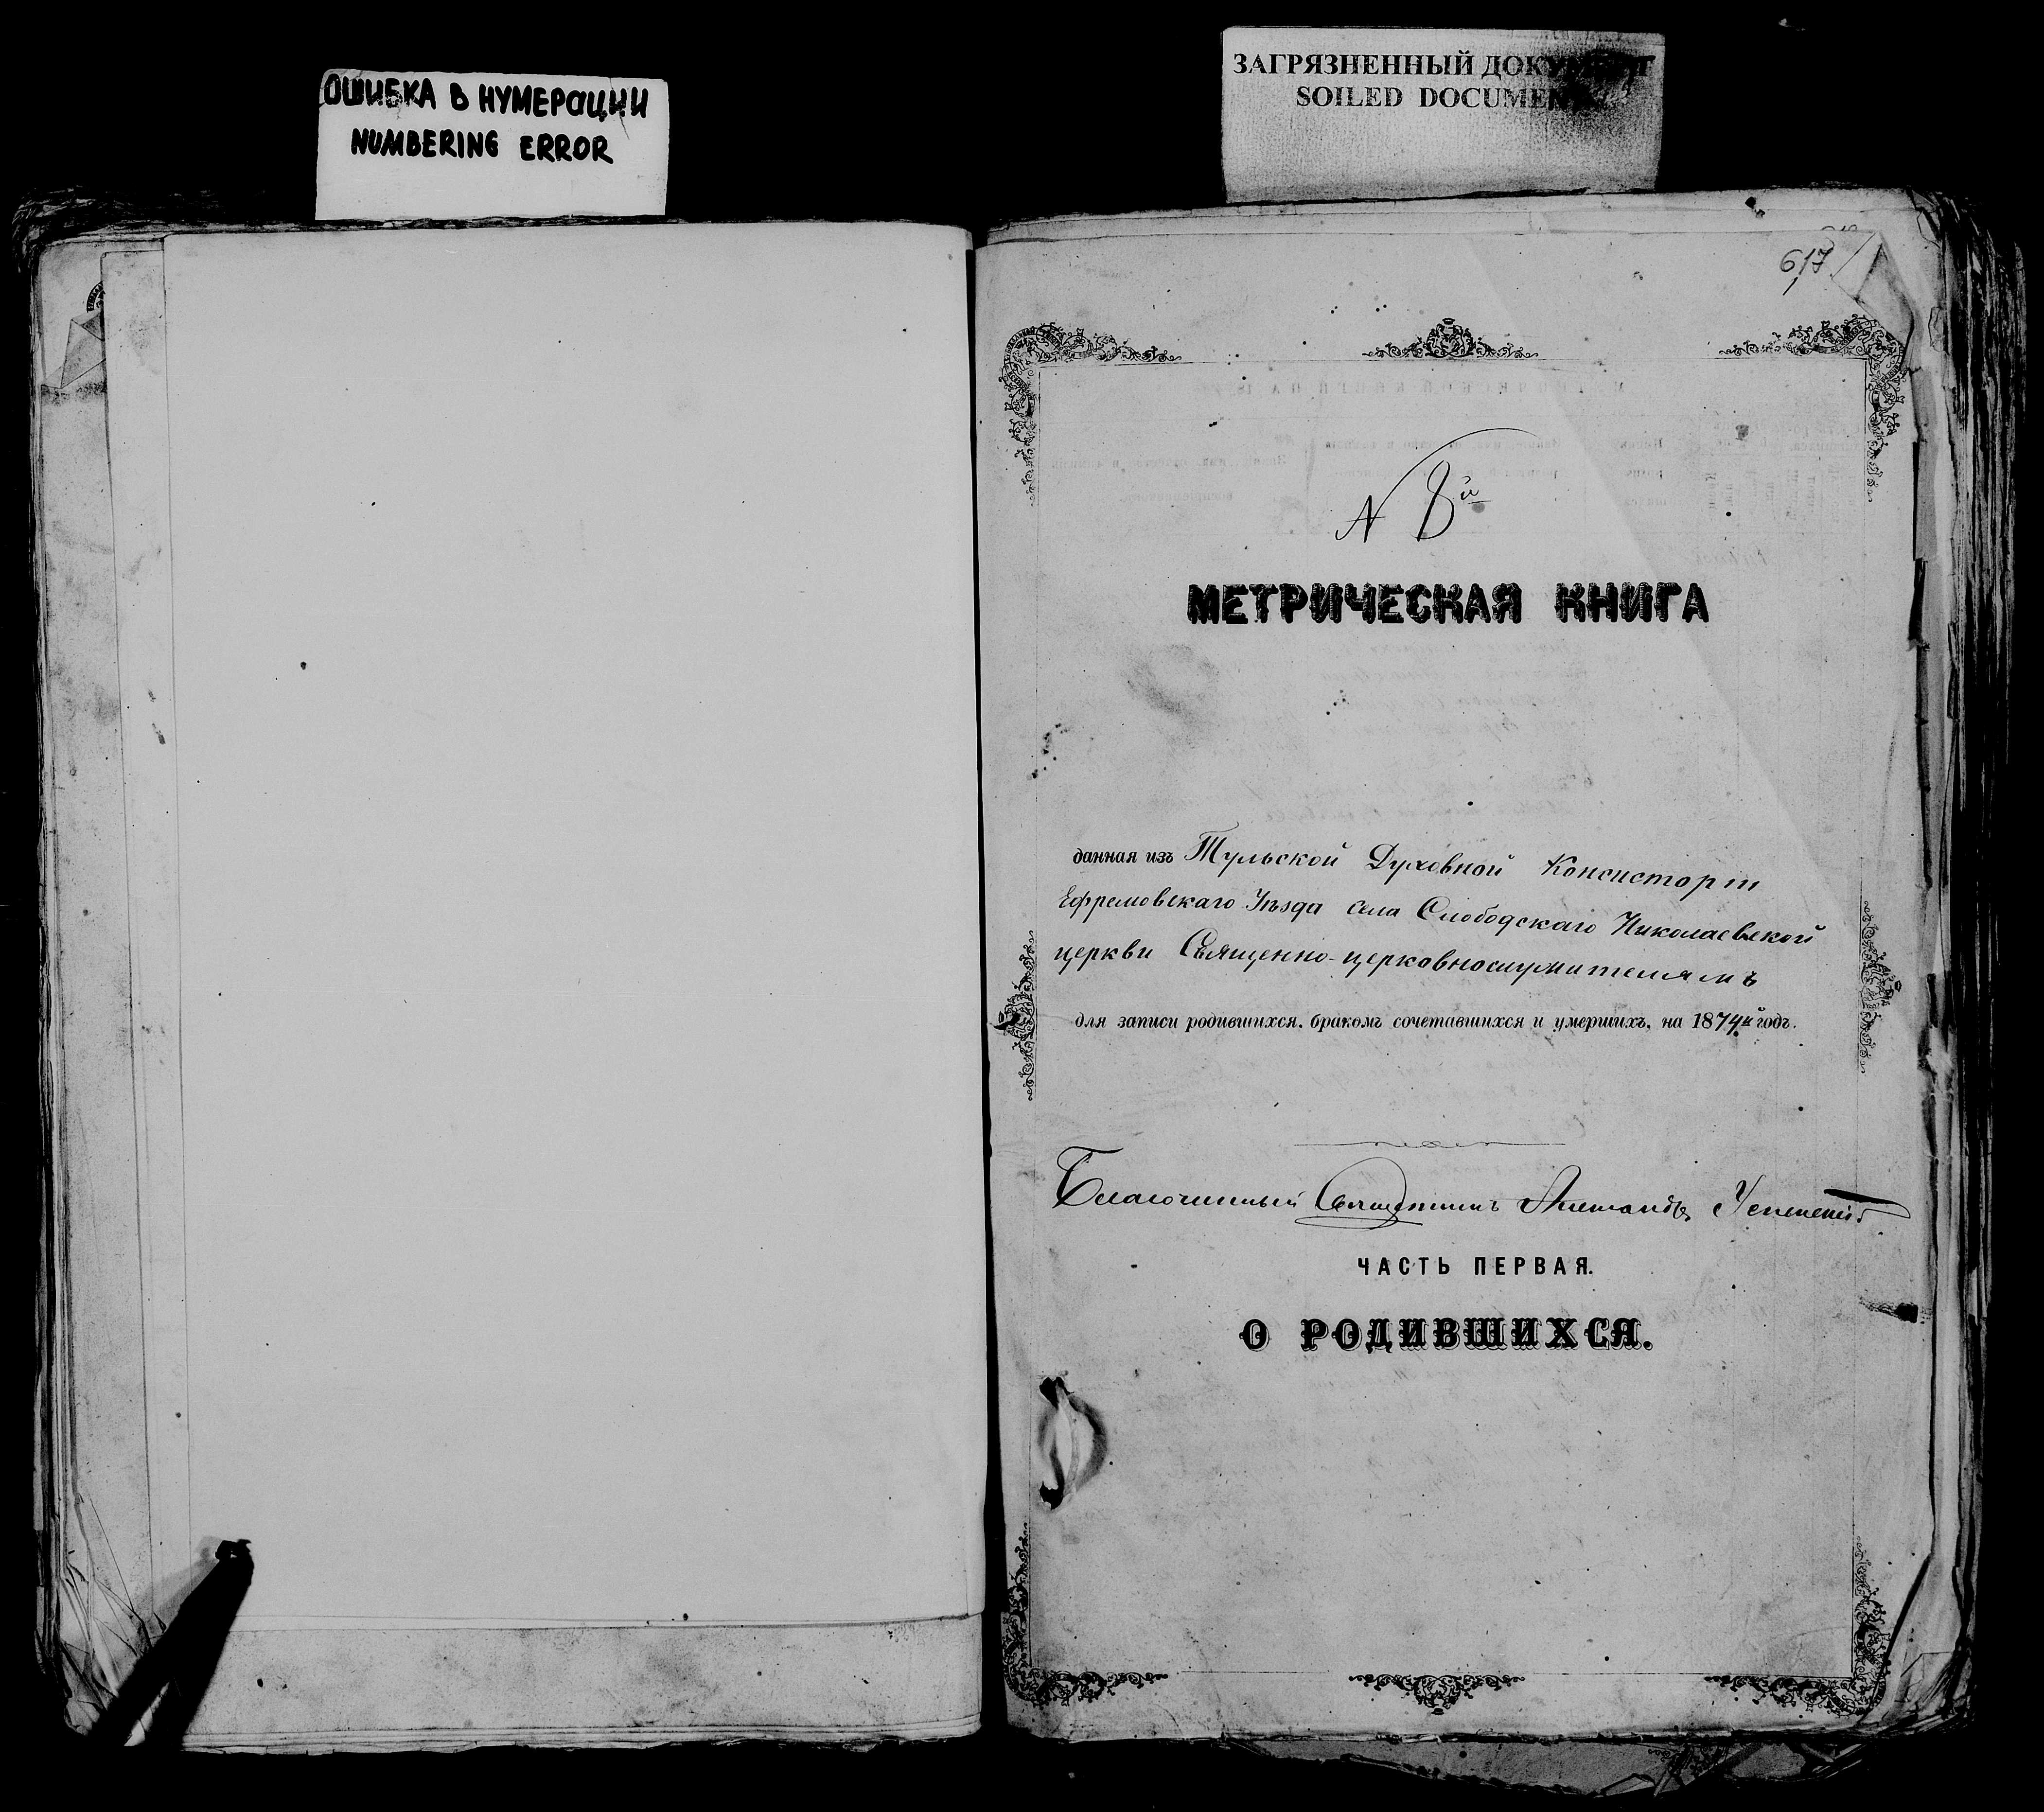 ОШИБКА В НУМЕРАЦИИ
NUMBERING ERROR
ЗАГРЯЗНЕННЫЙ ДОКУМЕНТ
SOILED DOCUMENT
617
N 8й
МЕТРИЧЕСКАЯ КНИГА
данная изъ Тульской Духовной Консисторіи
Ефремовскаго Уѣзда села Слободскаго Николаевской
церкви Священно-церковнослужителямъ
для записи родившихся, бракомъ сочетавшихся и умершихъ, на 1874й годъ.
Благочинный Священникъ Александръ Успенскій
ЧАСТЬ ПЕРВАЯ.
О РОДИВШИХСЯ.